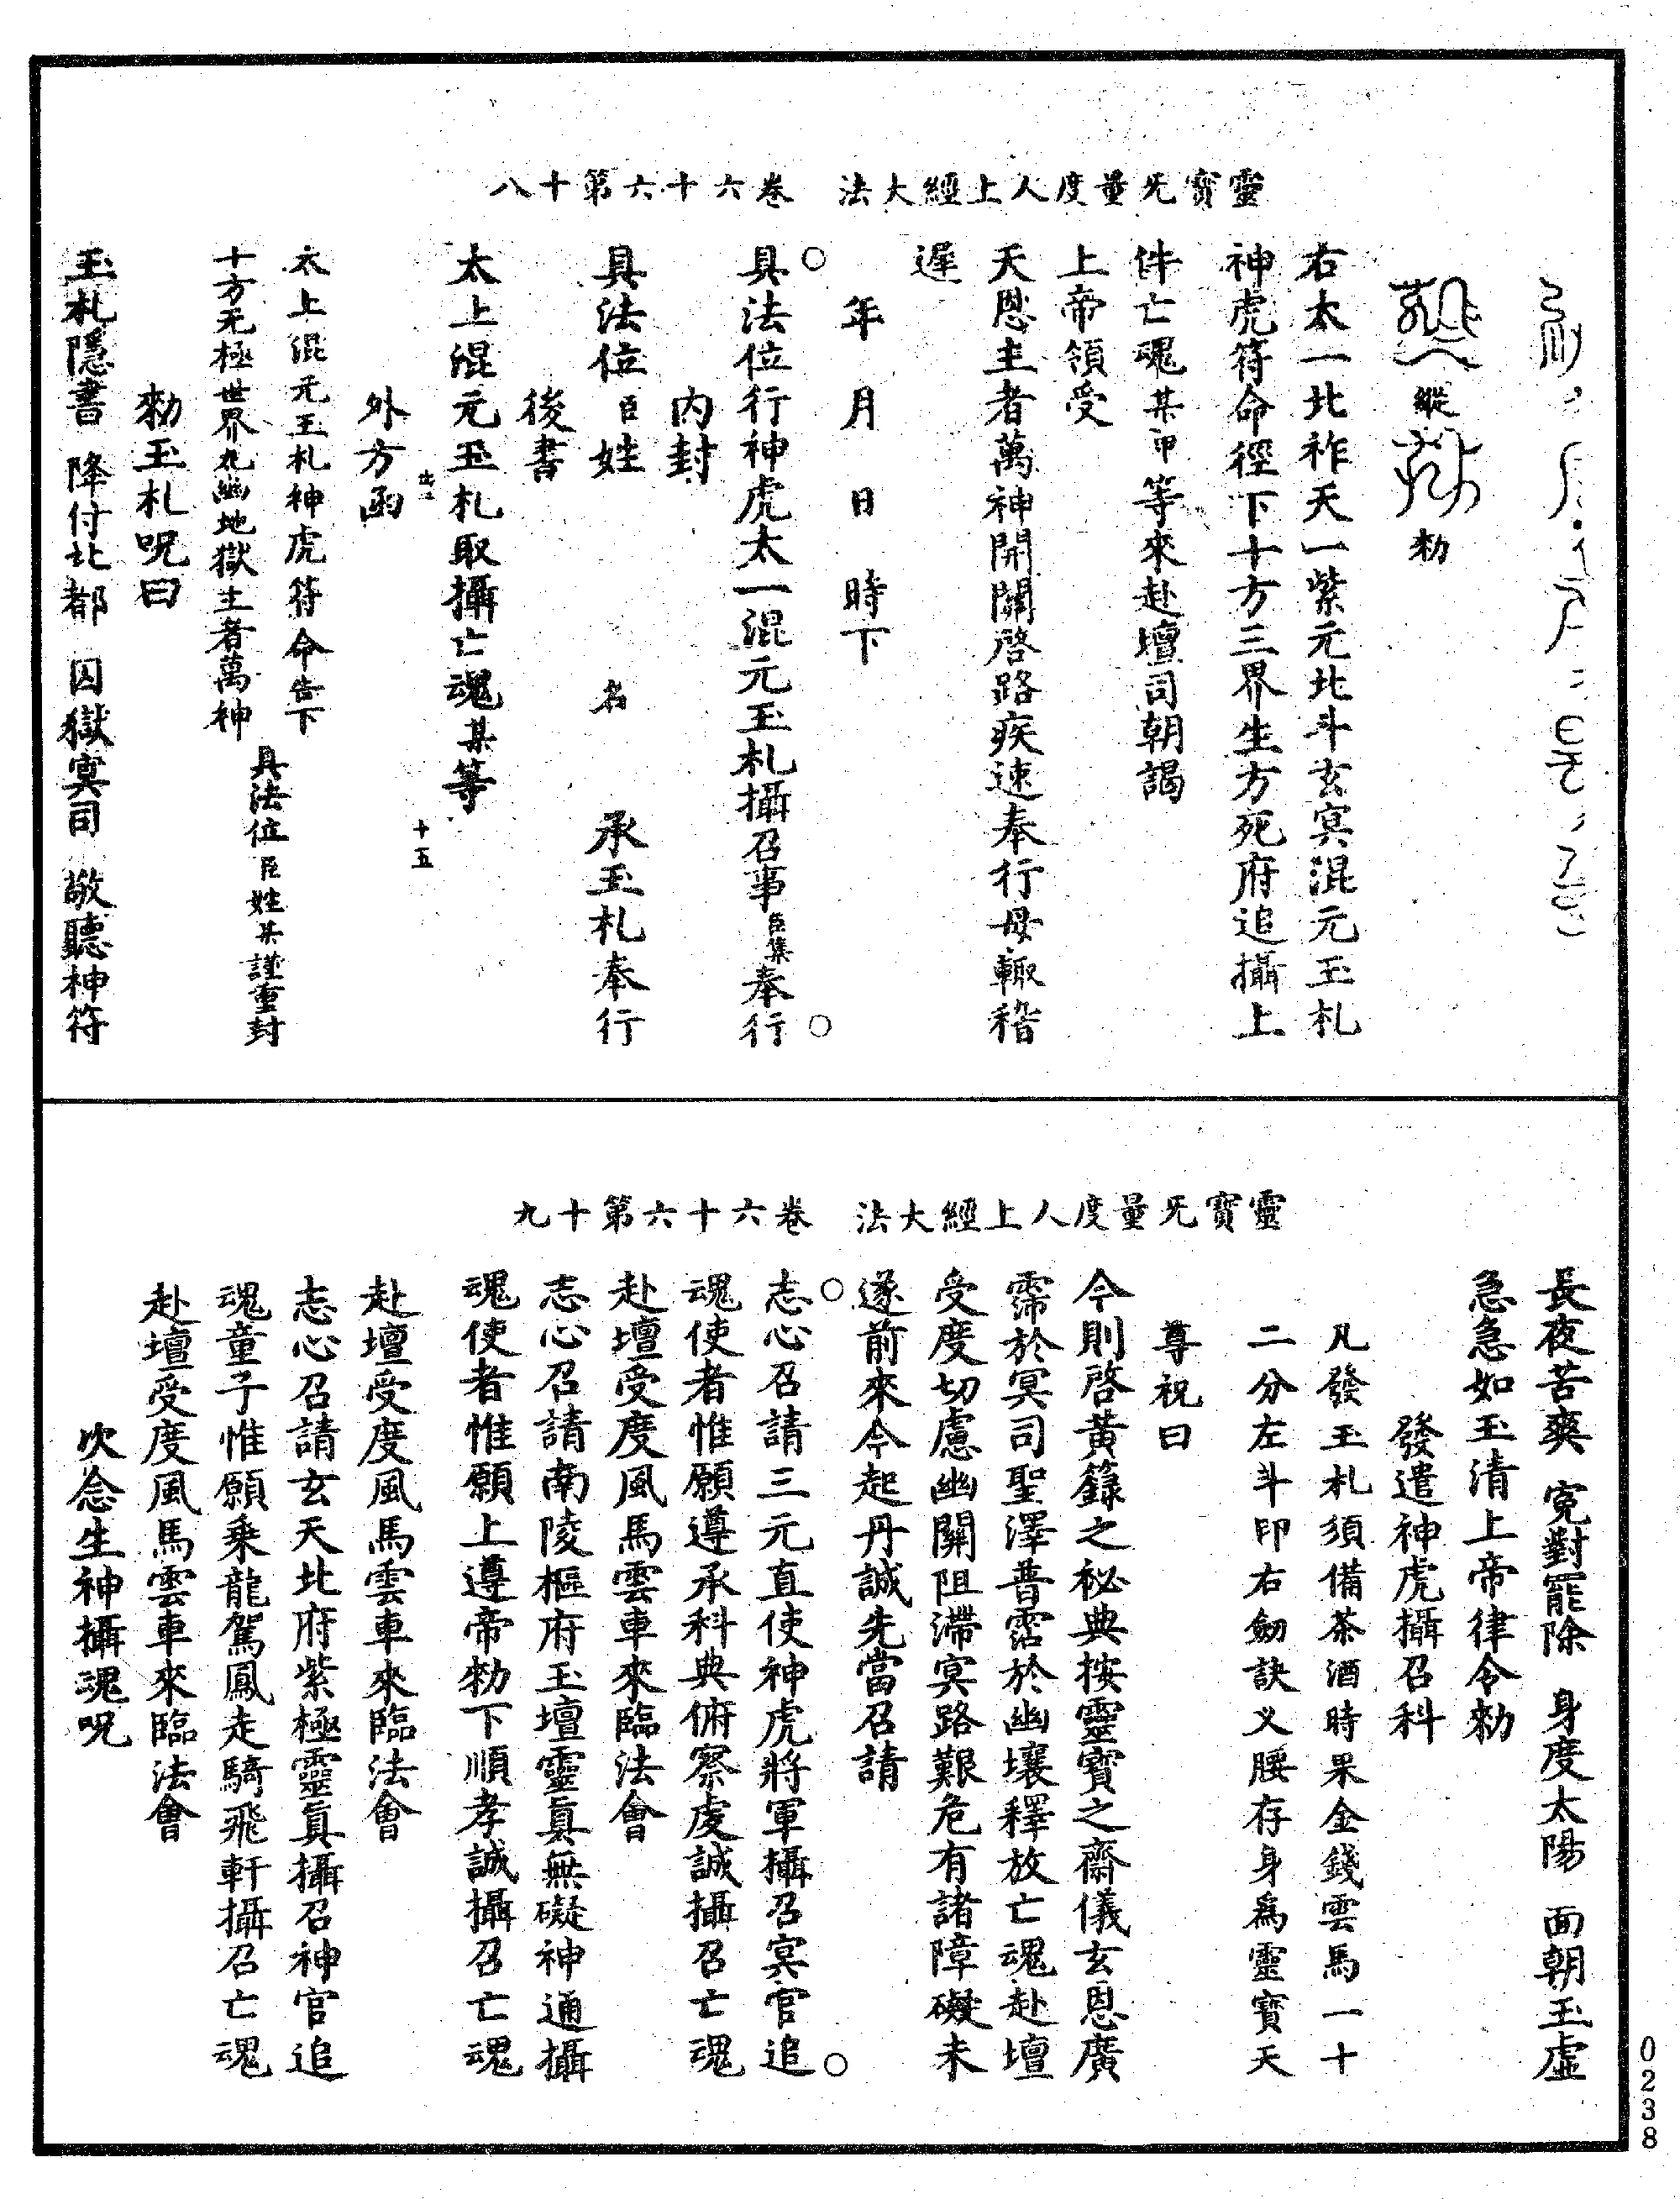 靈寶无量度人上經大法　卷六十六第十八
縱
勑
右太一北祚天一紫元北斗玄冥混元玉札
神虎符命徑下十方三界生方死府追攝上
件亡魂某甲等來赴壇司朝謁
上帝領受
天恩主者萬神開關啓路疾速奉行毋輙稽
遲
年　月　日　時下
具法位行神虎太一混元玉札攝召事臣某奉行
內封
具法位臣姓　名　承玉札奉行
後書
太上混元玉札取攝亡魂某等
十五
外方函
太上混元玉札神虎符命告下
十方无極世界九幽地獄主者萬神
具法位臣姓某謹重封
勑玉札呪曰
玉札隱書　降付北都　囚獄冥司　敬聽神符
靈寶无量度人上經大法　卷六十六第十九
長夜苦爽　寃對罷除　身度太陽　面朝玉虛
急急如玉清上帝律令勑
發遣神虎攝召科
凡發玉札須備茶酒時果金錢雲馬一十
二分左斗印右劒訣乂腰存身爲靈寶天
尊祝曰
今則啓黃籙之祕典按靈寶之齋儀玄恩廣
霈於冥司聖澤普霑於幽壤釋放亡魂赴壇
受度切慮幽關阻滯冥路艱危有諸障礙未
遂前來今起丹誠先當召請
志心召請三元直使神虎將軍攝召冥官追
魂使者惟願遵承科典俯察虔誠攝召亡魂
赴壇受度風馬雲車來臨法會
志心召請南陵樞府玉壇靈眞無礙神通攝
魂使者惟願上遵帝勑下順孝誠攝召亡魂
赴壇受度風馬雲車來臨法會
志心召請玄天北府紫極靈眞攝召神官追
魂童子惟願乘龍駕鳳走騎飛軒攝召亡魂
赴壇受度風馬雲車來臨法會
次念生神攝魂呪
0238